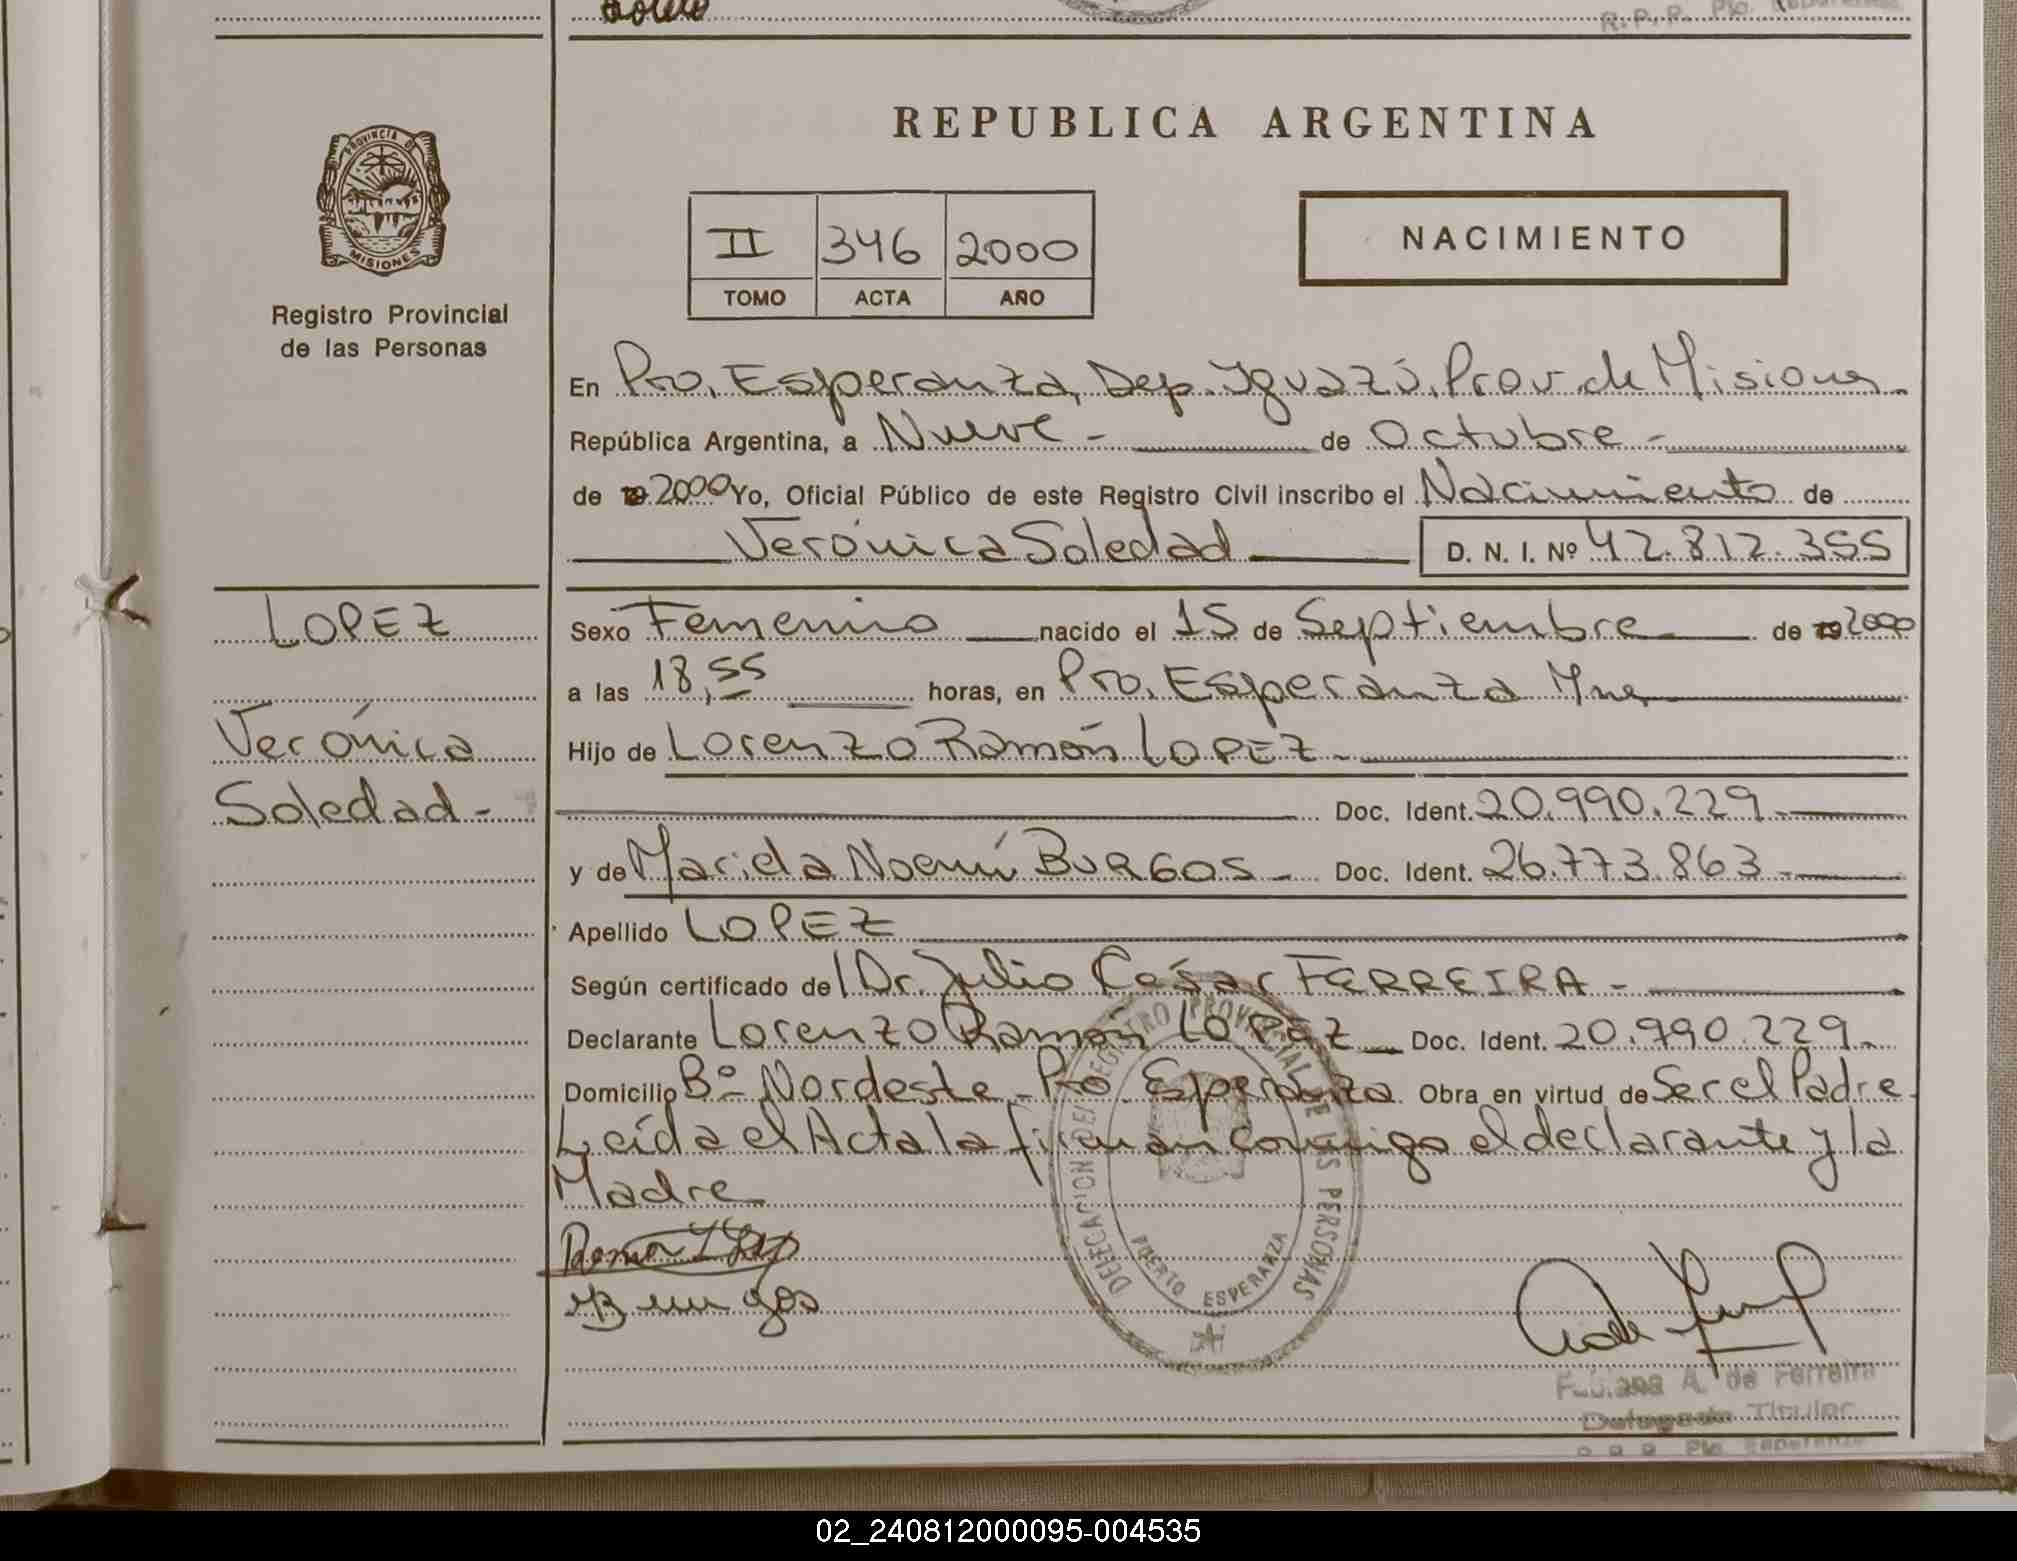 R.P.P. Pto. Esperanza
REPUBLICA ARGENTINA
PROVINCIA DE
MISIONES
Registro Provincial
de las Personas
II 346 2000
TOMO ACTA AÑO
NACIMIENTO
En Pto. Esperanza, Dep. Iguazú, Prov. de Misiones
República Argentina, a Nueve - de Octubre -
de 19 2000 Yo, Oficial Público de este Registro Civil inscribo el Nacimiento de
Verónica Soledad D. N. I. Nº 42.812.355
LOPEZ
Verónica
Soledad -
Sexo Femenino nacido el 15 de Septiembre de 19 2000
a las 18,55 horas, en Pto. Esperanza Mnes
Hijo de Lorenzo Ramón LOPEZ -
Doc. Ident. 20.990.229 -
y de Mariela Noemí BURGOS - Doc. Ident. 26.773.863 -
Apellido LOPEZ
Según certificado del Dr. Julio César FERREIRA -
Declarante Lorenzo Ramón LOPEZ Doc. Ident. 20.990.229 -
Domicilio Bº Nordeste - Pto Esperanza Obra en virtud de Ser el Padre -
Leída el Acta la firman conmigo el declarante y la
Madre
DELEGACION DEL REGISTRO PROVINCIAL DE LAS PERSONAS
PUERTO ESPERANZA
Burgos
Fabiana A. de Ferreira
Delegada Titular
R.P.P. Pto. Esperanza
02_240812000095-004535